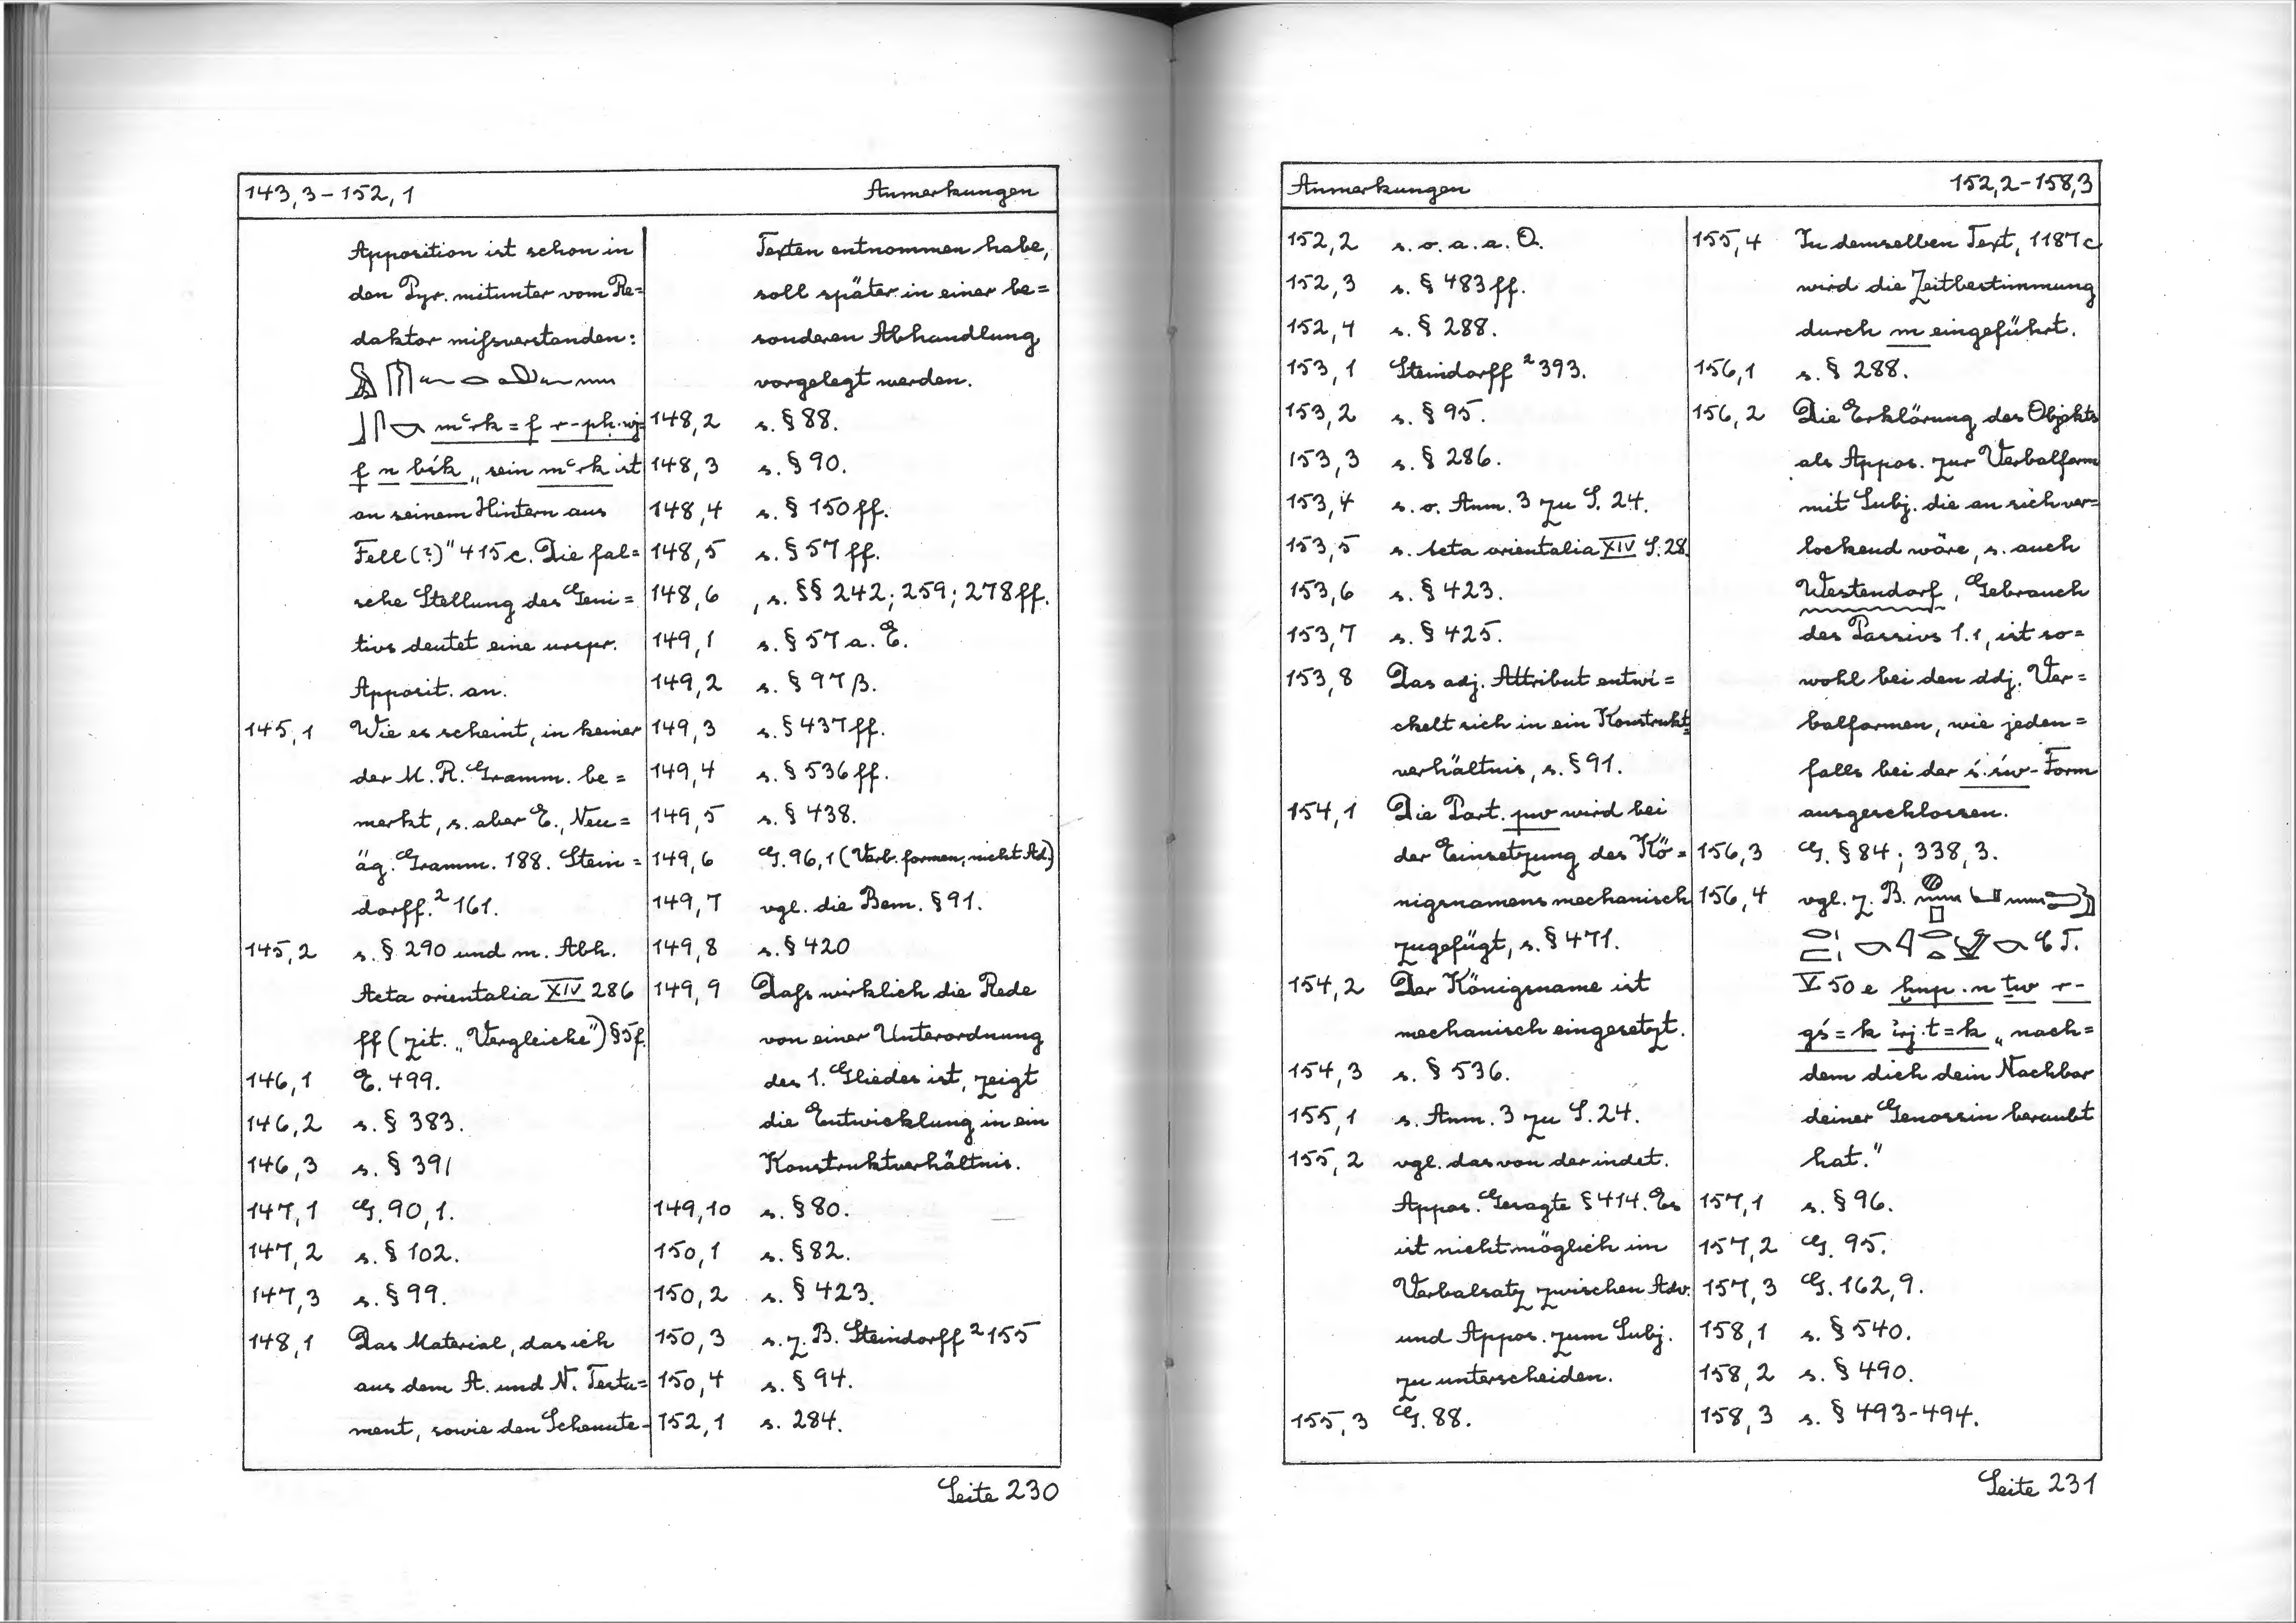 143,3 – 152,1 Anmerkungen
Apposition ist schon in
den Pyr. mitunter vom Re=
daktor mißverstanden:
mꜥrk = f r-pḥ.wj=
f n bꜣk „sein mꜥrk ist
an seinem Hintern aus
Fell (?)" 415c. Die fal=
sche Stellung des Geni=
tivs deutet eine urspr.
Apposit. an.
145,1 Wie es scheint, in keiner
der M.R. Gramm. be=
merkt, s. aber E., Neu=
äg. Gramm. 188. Stein=
dorff.² 161.
145,2 s. § 290 und m. Abh.
Acta orientalia XIV 286
ff (zit. „Vergleiche") § 5f.
146,1 E. 499.
146,2 s. § 383.
146,3 s. § 391
147,1 G. 90,1.
147,2 s. § 102.
147,3 s. § 99.
148,1 Das Material, das ich
aus dem A. und N. Testa=
ment, sowie den Schenute-
Texten entnommen habe,
soll später in einer be=
sonderen Abhandlung
vorgelegt werden.
148,2 s. § 88.
148,3 s. § 90.
148,4 s. § 150 ff.
148,5 s. § 57 ff.
148,6 , s. §§ 242; 259; 278 ff.
149,1 s. § 57 a. E.
149,2 s. § 97 β.
149,3 s. § 437 ff.
149,4 s. § 536 ff.
149,5 s. § 438.
149,6 G. 96,1 (Verb. formen, nicht Ad.)
149,7 vgl. die Bem. § 91.
149,8 s. § 420
149,9 Daß wirklich die Rede
von einer Unterordnung
des 1. Gliedes ist, zeigt
die Entwicklung in ein
Konstruktverhältnis.
149,10 s. § 80.
150,1 s. § 82.
150,2 s. § 423.
150,3 s. z. B. Steindorff ² 155
150,4 s. § 94.
152,1 s. 284.
Seite 230
Anmerkungen 152,2 – 158,3
152,2 s. o. a. a. O.
152,3 s. § 483 ff.
152,4 s. § 288.
153,1 Steindorff ² 393.
153,2 s. § 95.
153,3 s. § 286.
153,4 s. o. Anm. 3 zu S. 24.
153,5 s. Acta orientalia XIV S. 28.
153,6 s. § 423.
153,7 s. § 425.
153,8 Das adj. Attribut entwi=
ckelt sich in ein Konstrukt=
verhältnis, s. § 91.
154,1 Die Part. pw wird bei
der Einsetzung des Kö=
nigsnamens mechanisch
zugefügt, s. § 471.
154,2 Der Königsname ist
mechanisch eingesetzt.
154,3 s. § 536.
155,1 s. Anm. 3 zu S. 24.
155,2 vgl. das von der indet.
Appos. Gesagte § 414. Es
ist nicht möglich im
Verbalsatz zwischen Adv.
und Appos. zum Subj.
zu unterscheiden.
155,3 G. 88.
155,4 In demselben Text, 1187 c
wird die Zeitbestimmung
durch m eingeführt.
156,1 s. § 288.
156,2 Die Erklärung des Objekts
als Appos. zur Verbalform
mit Subj. die an sich ver=
lockend wäre, s. auch
Westendorf, Gebrauch
des Passivs 1.1, ist so=
wohl bei den ddj. Ver=
balformen, wie jeden=
falls bei der ś.św-Form
ausgeschlossen.
156,3 G. § 84; 338,3.
156,4 vgl. z. B.
C T.
V 50 e ḫnp.n tw r-
gś=k ỉrj.t=k „nach=
dem dich dein Nachbar
deiner Genossin beraubt
hat."
157,1 s. § 96.
157,2 G. 95.
157,3 G. 162,9.
158,1 s. § 540.
158,2 s. § 490.
158,3 s. § 493-494.
Seite 231